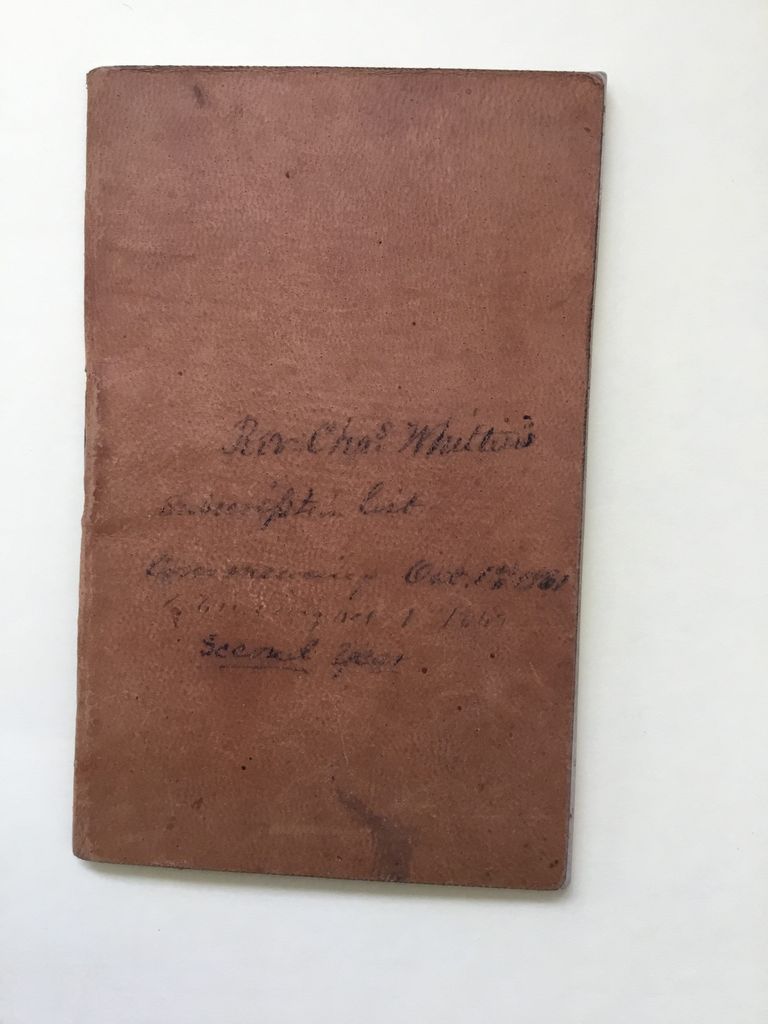 Rev. Chas Whittier's
Subscription List
Commencing Oct. 1st 1861
1
Second Year